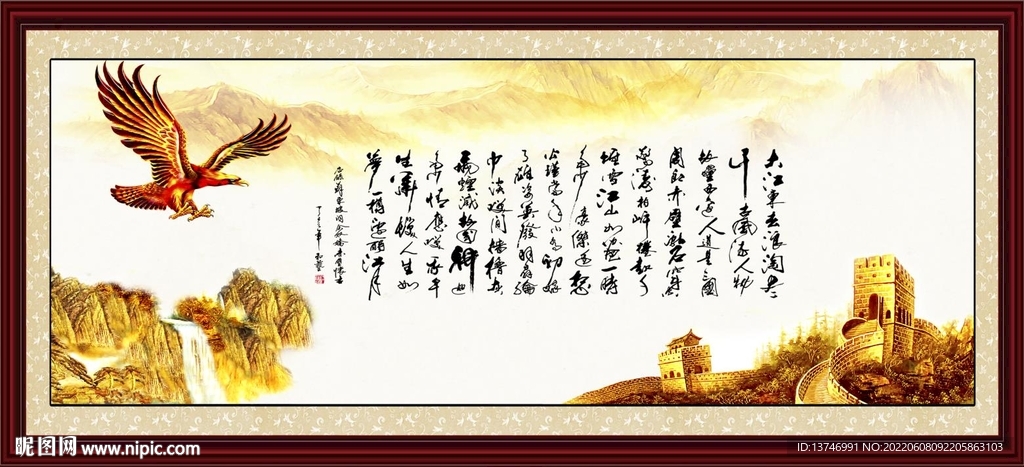 大江東去浪淘盡
千古風流人物
故壘西邊人道是三國
周郎赤壁亂石穿空
驚濤拍岸捲起千
堆雪江山如畫一時
多少豪傑遙想
公瑾當年小喬初嫁
了雄姿英發羽扇綸
巾談笑間檣櫓灰
飛煙滅故國神遊
多情應笑我早
生華髮人生如
夢一樽還酹江月
昵图网 www.nipic.com
ID:13746991 NO:20220608092205863103